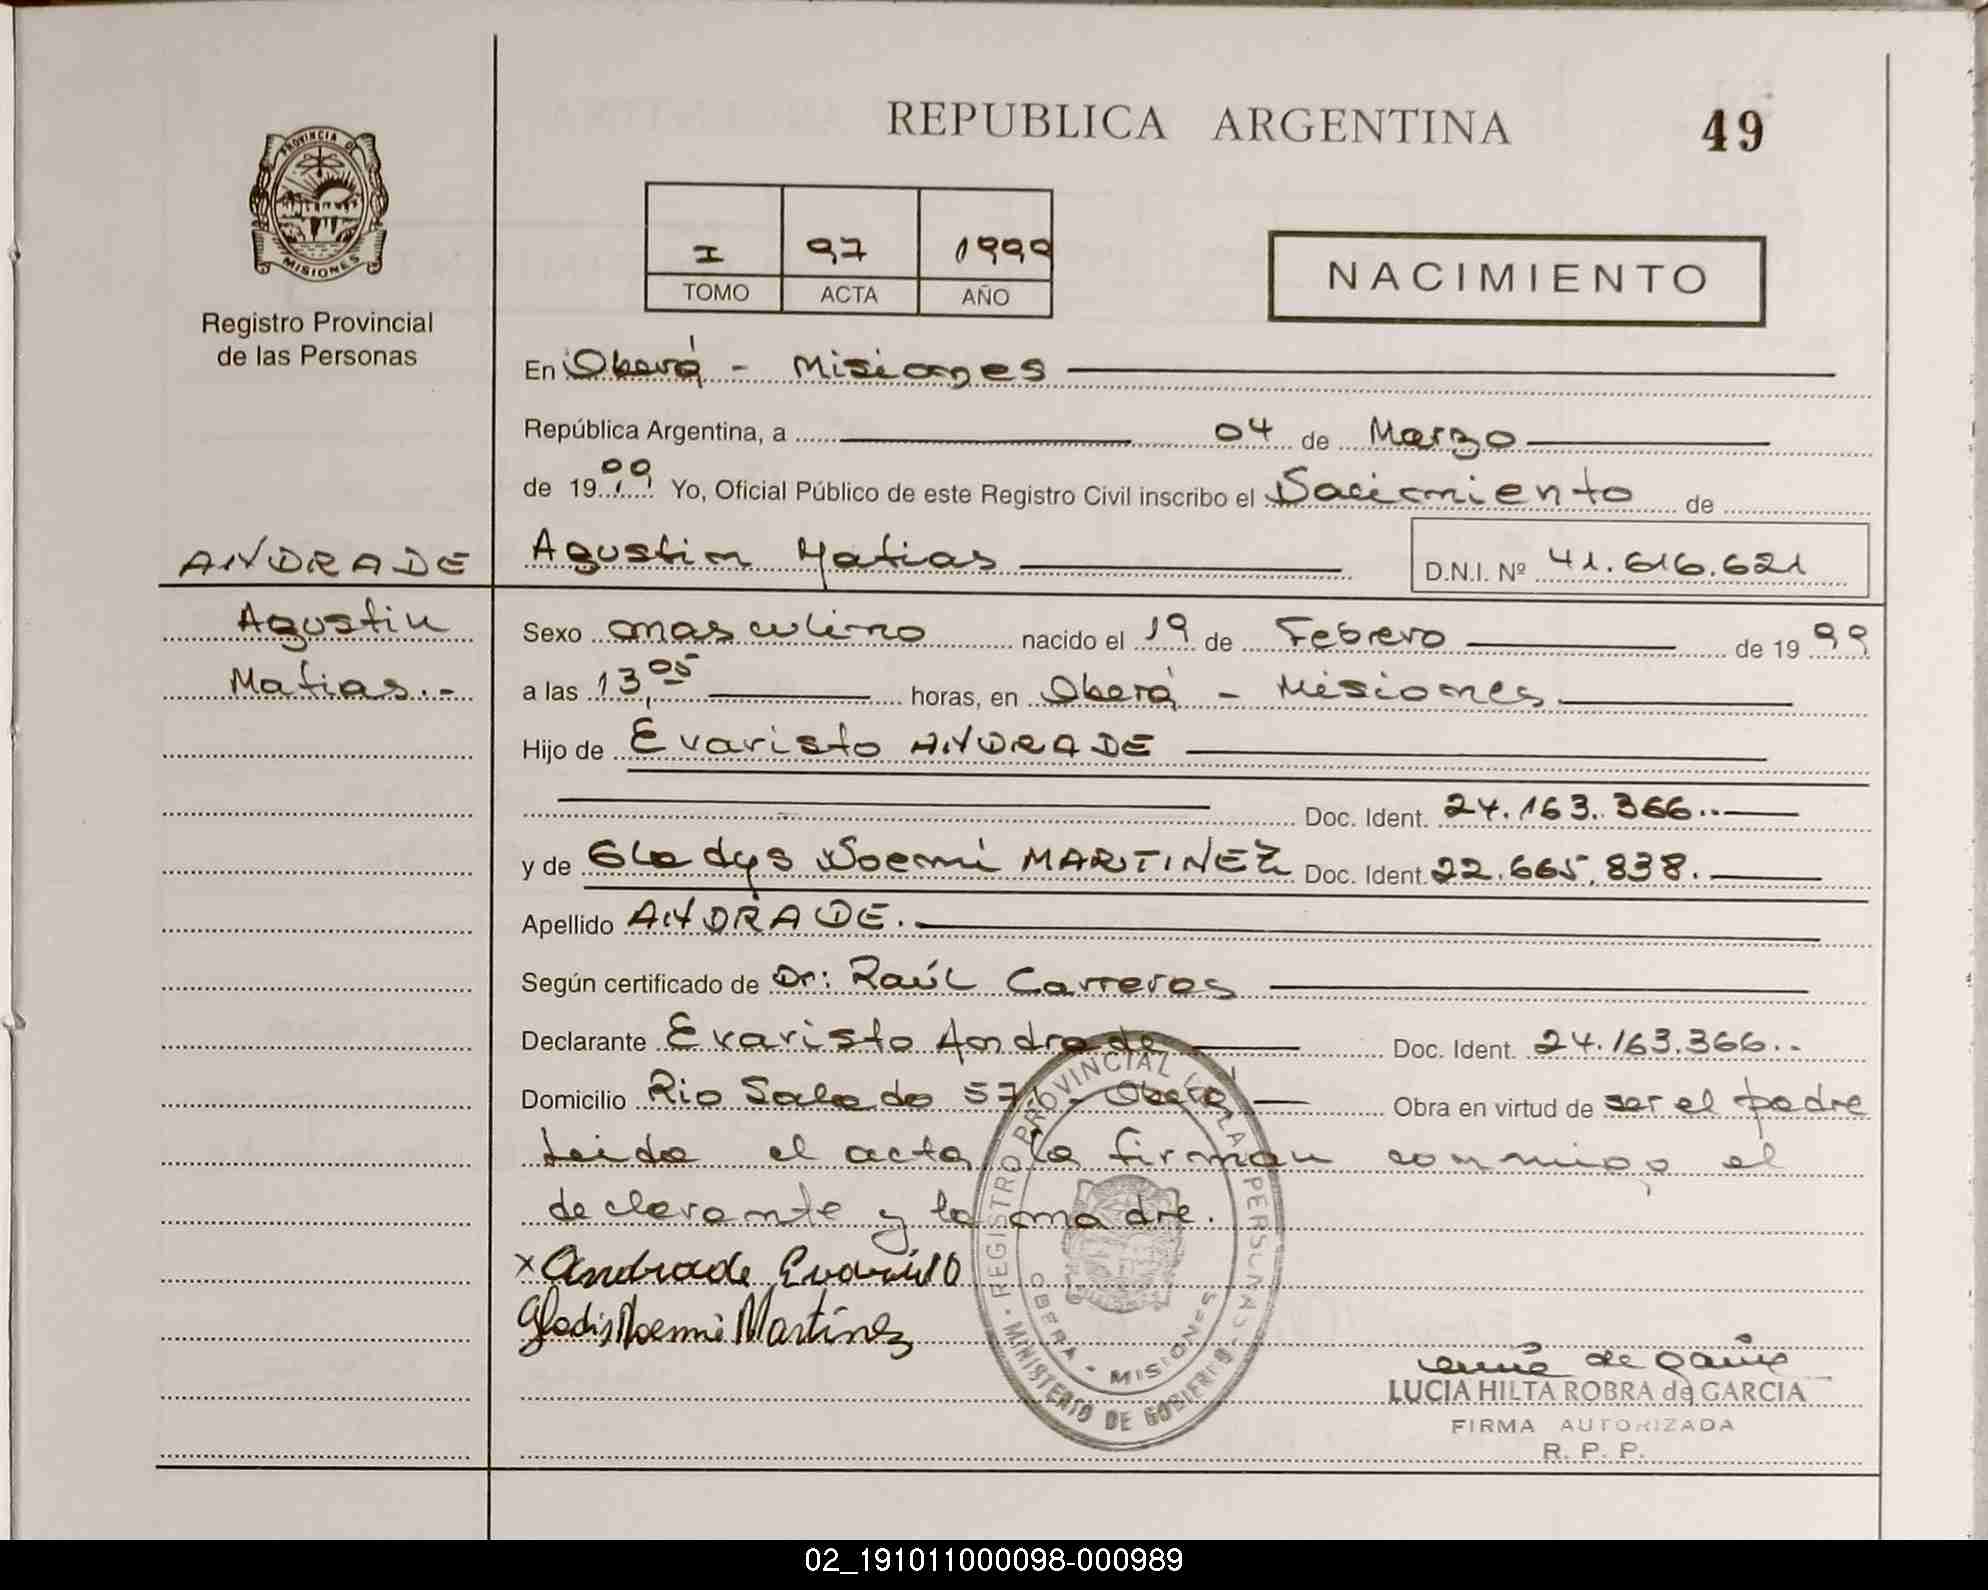 PROVINCIA DE
MISIONES
Registro Provincial
de las Personas
REPUBLICA ARGENTINA
49
I 97 1999
TOMO ACTA AÑO
NACIMIENTO
En Oberá - Misiones
República Argentina, a 04 de Marzo
de 1999 Yo, Oficial Público de este Registro Civil inscribo el Nacimiento de
ANDRADE
Agustin Matias
D.N.I. Nº 41.616.621
Agustin
Matias.-
Sexo masculino nacido el 19 de Febrero de 1999
a las 13,05 horas, en Oberá - Misiones
Hijo de Evaristo ANDRADE
Doc. Ident. 24.163.366.-
y de Gladys Noemi MARTINEZ Doc. Ident. 22.665.838.
Apellido ANDRADE.
Según certificado de Dr: Raúl Carreros
Declarante Evaristo Andrade Doc. Ident. 24.163.366.-
Domicilio Rio Salado 576 - Oberá Obra en virtud de ser el padre
Leida el acta, la firman conmigo el
declarante y la madre.
x Andrade Evaristo
Gladis Noemi Martínez
REGISTRO PROVINCIAL DE LAS PERSONAS
OBERA - MISIONES
MINISTERIO DE GOBIERNO
LUCIA HILTA ROBRA de GARCIA
FIRMA AUTORIZADA
R. P. P.
02_191011000098-000989